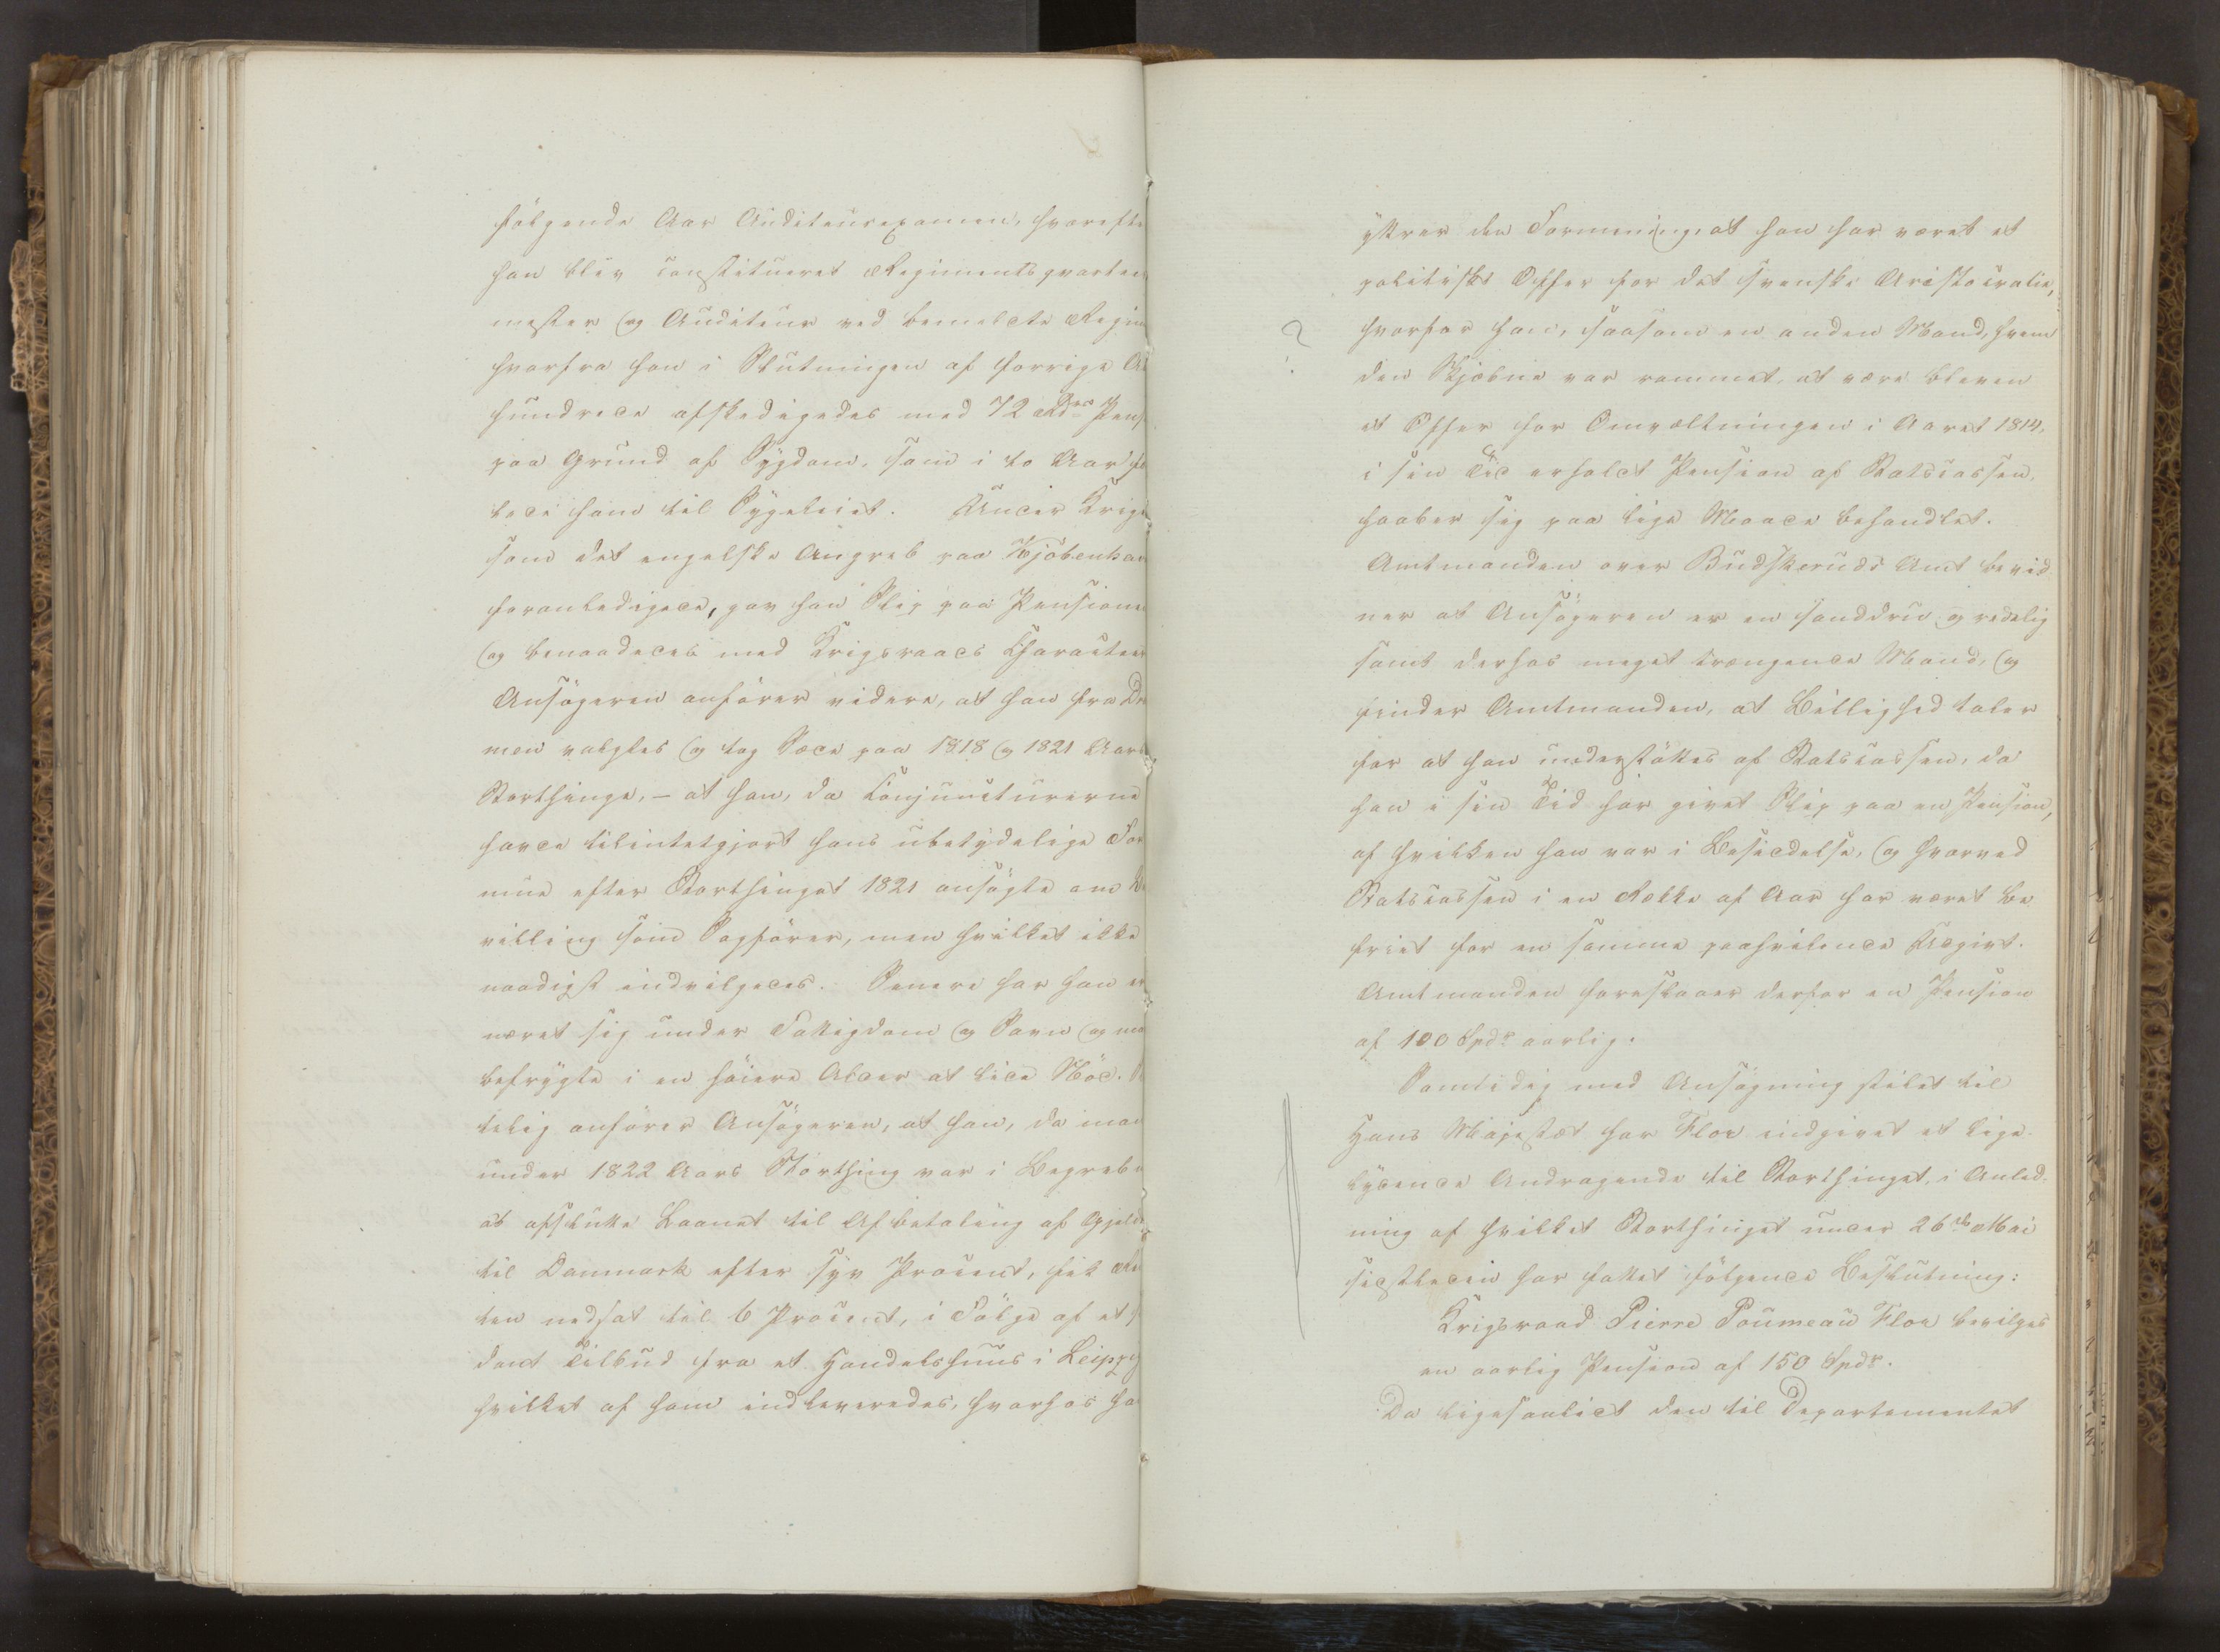 følgende Aar Auditeurexamen, hvorefte
han blev constitueret Regimentsqvarteer
mester og Auditeur ved bemeldte Regim
hvorfra han i Slutningen af forrige Aa
hundrede afskedigedes med 72 Rdr Pens
paa Grund af Sygdom, som i to Aar fæ
tede ham til Sygeleiet. Under Krige
som det engelske Angreb paa Kjöbenhav
foranledigede, gav han Slip paa Pensione
og benaadedes med Krigsraads Characteer
Ansøgeren anfører videre, at han fra Dra
men valgtes og tog Sæde paa 1818 og 1821 Aars
Storthinge, – at han, da Conjuncturerne
havde tilintetgjort hans ubetydelige For
mue efter Storthinget 1821 ansøgte om Be
villing som Sagfører, men hvilket ikke
naadigst indvilgedes. Senere har han er
næret sig under Fattigdom og Savn og maa
befrygte i en høiere Alder at lide Nöd.
telig anfører Ansøgeren, at han, da man
under 1822 Aars Storthing var i Begreb
at afslutte Laanet til Afbetaling af Gjeld
til Danmark efter syv Procent, fik Ren
ten nedsat til 6 Procent, i Følge af et s
dant Tilbud fra et Handelshuus i Leipzig
hvilket af ham indleveredes, hvorhos ha
yttrer den Formening, at han har været et
politiskt Offer for det svenske Aristocratie,
hvorfor han, saasom en anden Mand, hvem
den Skjæbne var rammet, at være bleven
et Offer for Omvæltningen i Aaret 1814,
i sin Tid erholdt Pension af Statscassen,
haaber sig paa lige Maade behandlet.
Amtmanden over Budskeruds Amt bevid
ner at Ansøgeren er en sanddru og redelig
samt derhos meget trængende Mand, og
finder Amtmanden, at Billighed taler
for at han understøttes af Statscassen, da
han i sin Tid har givet Slip paa en Pension,
af hvilken han var i Besiddelse, og hvorved
Statscassen i en Række af Aar har været be
friet for en samme paahvilende Udgivt.
Amtmanden foreslaaer derfor en Pension
af 100 Spdr aarlig.
Samtidig med Ansøgning stilet til
Hans Majestæt har Flor indgivet et lige
lydende Andragende til Storthinget, i Anled
ning af hvilket Storthinget under 26de Mai
sidstleden har fattet følgende Beslutning:
Krigsraad Pierre Poumeau Flor bevilges
en aarlig Pension af 150 Spdr.
Da ligesaalidt den til Departementet